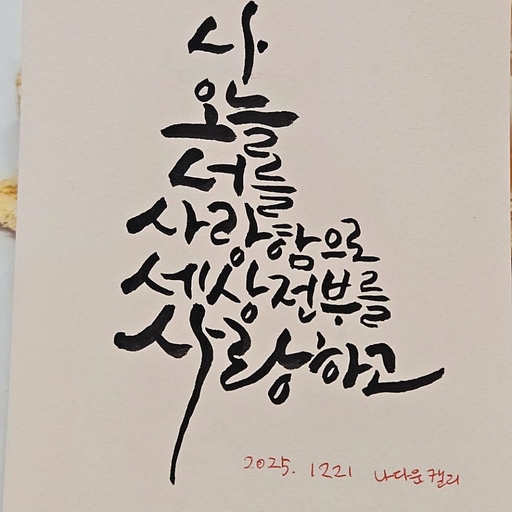 나
오늘
너를
사랑함으로
세상 전부를
사랑하고
2025. 1221 나다운캘리